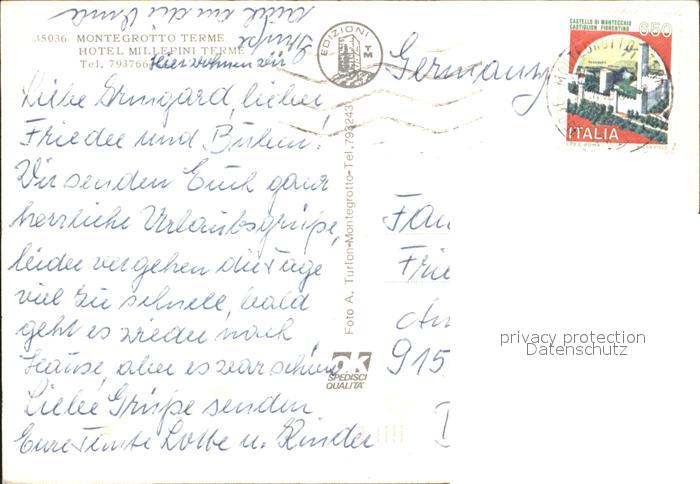 35036 MONTEGROTTO TERME
HOTEL MILLEPINI TERME
Tel. 793766
Hier wohnen wir
EDIZIONI
TM
CASTELLO DI MONTECCHIO
CASTIGLION FIORENTINO
650
ITALIA
Germany
Liebe Irmgard, lieber
Frieder und Buben!
Wir senden Euch ganz
herzliche Urlaubsgrüße,
leider vergehen die Tage
viel zu schnell, bald
geht es wieder nach
Hause, aber es war schön.
Liebe Grüße senden
Eure Tante Lotte u. Kinder
Foto A. Turlon-Montegrotto-Tel. 793243
OK
SPEDISCI
QUALITA'
Fam
Frie
915
privacy protection
Datenschutz